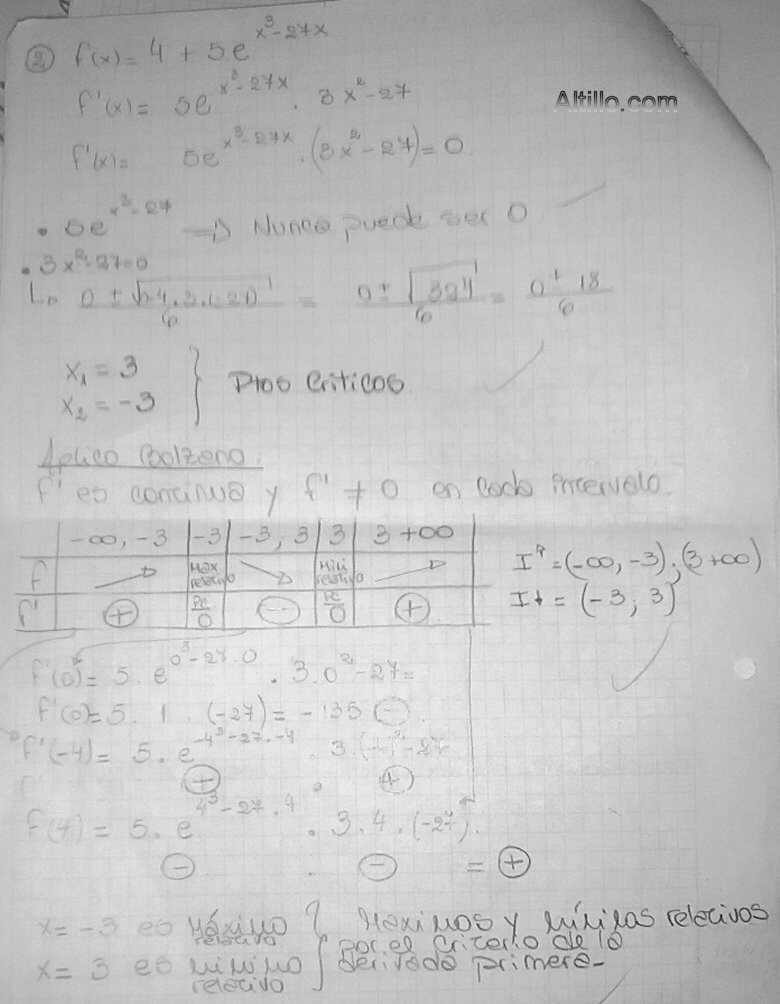 ② f(x) = 4 + 5e^(x³-27x)
f'(x) = 5e^(x³-27x) . 3x²-27
Altillo.com
f'(x) = 5e^(x³-27x) . (3x²-27) = 0
• 5e^(x³-27) ⇒ Nunca puede ser 0
• 3x²-27=0
= (0 ± √324)/6 = (0 ± 18)/6
x₁ = 3
x₂ = -3 } Ptos Criticos
Aplico Bolzano.
f' es continua y f' ≠ 0 en cada intervalo.
-∞, -3 | -3 | -3, 3 | 3 | 3 +∞
f | ↗ | Max relativo | ↘ | Mini relativo | ↗
f' | + | PC 0 | - | PC 0 | +
I↑ = (-∞, -3) ; (3 +∞)
I↓ = (-3 ; 3)
f'(0) = 5 . e^(0³-27.0) . 3.0²-27=
f'(0)= 5 . 1 . (-27) = -135 ⊖.
f'(-4) = 5 . e^(-4³-27.-4) . 3.(-4)²-27
⊕ . ⊕
f(4) = 5 . e^(4³-27.4) . 3.4.(-27).
⊖ . ⊖ = ⊕
x = -3 es Máximo relativo } Maximos y mínimos relativos
x = 3 es minimo relativo } por el criterio de la derivada primera-